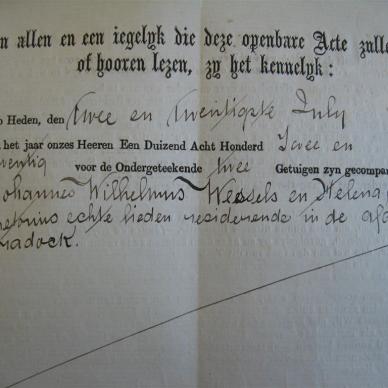 n allen en een iegelyk die deze openbare Acte zulle
of hooren lezen, zy het kennelyk:
Heden, den Twee en Twentigste July
het jaar onzes Heeren Een Duizend Acht Honderd Twee en
wentig voor de Ondergeteekende twee Getuigen zyn gecompar
ohannes Wilhelmus Wessels en Helena
echte lieden residerende in de afd
radock.